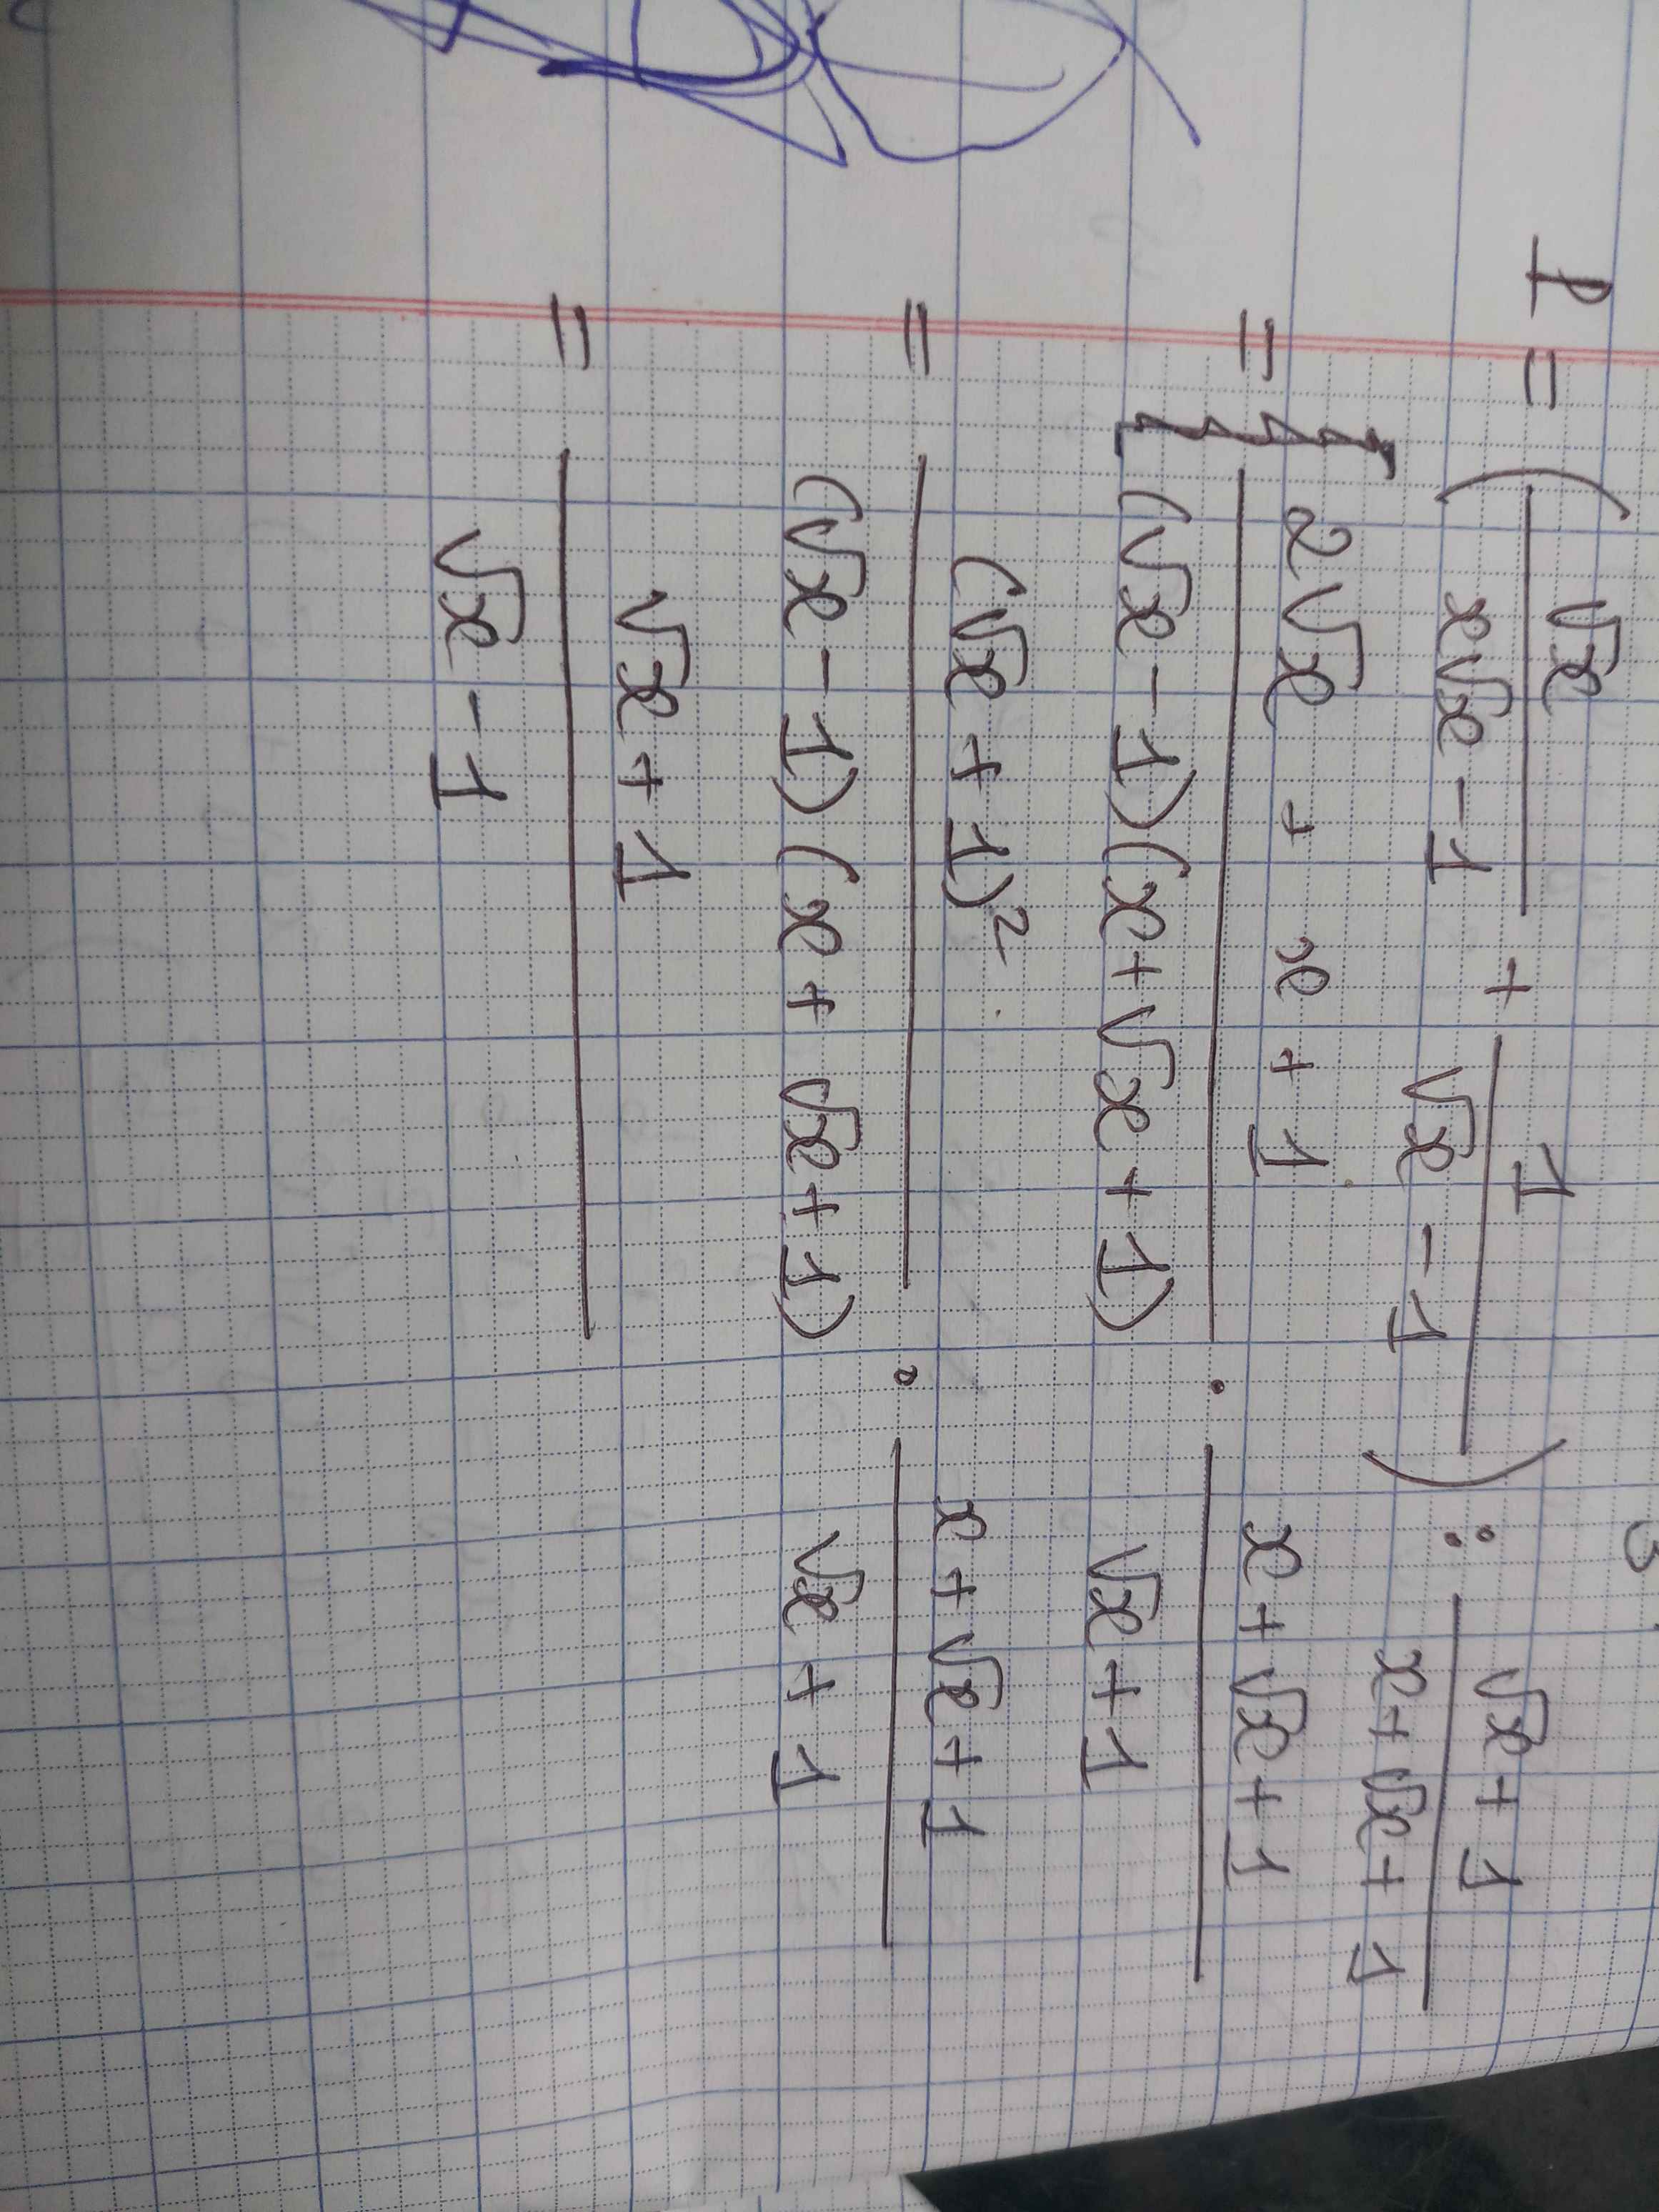 P = (√x / (x√x - 1) + 1 / (√x - 1)) : (√x + 1) / (x + √x + 1)
= (2√x + x + 1) / ((√x - 1)(x + √x + 1)) . (x + √x + 1) / (√x + 1)
= (√x + 1)² / ((√x - 1)(x + √x + 1)) . (x + √x + 1) / (√x + 1)
= (√x + 1) / (√x - 1)